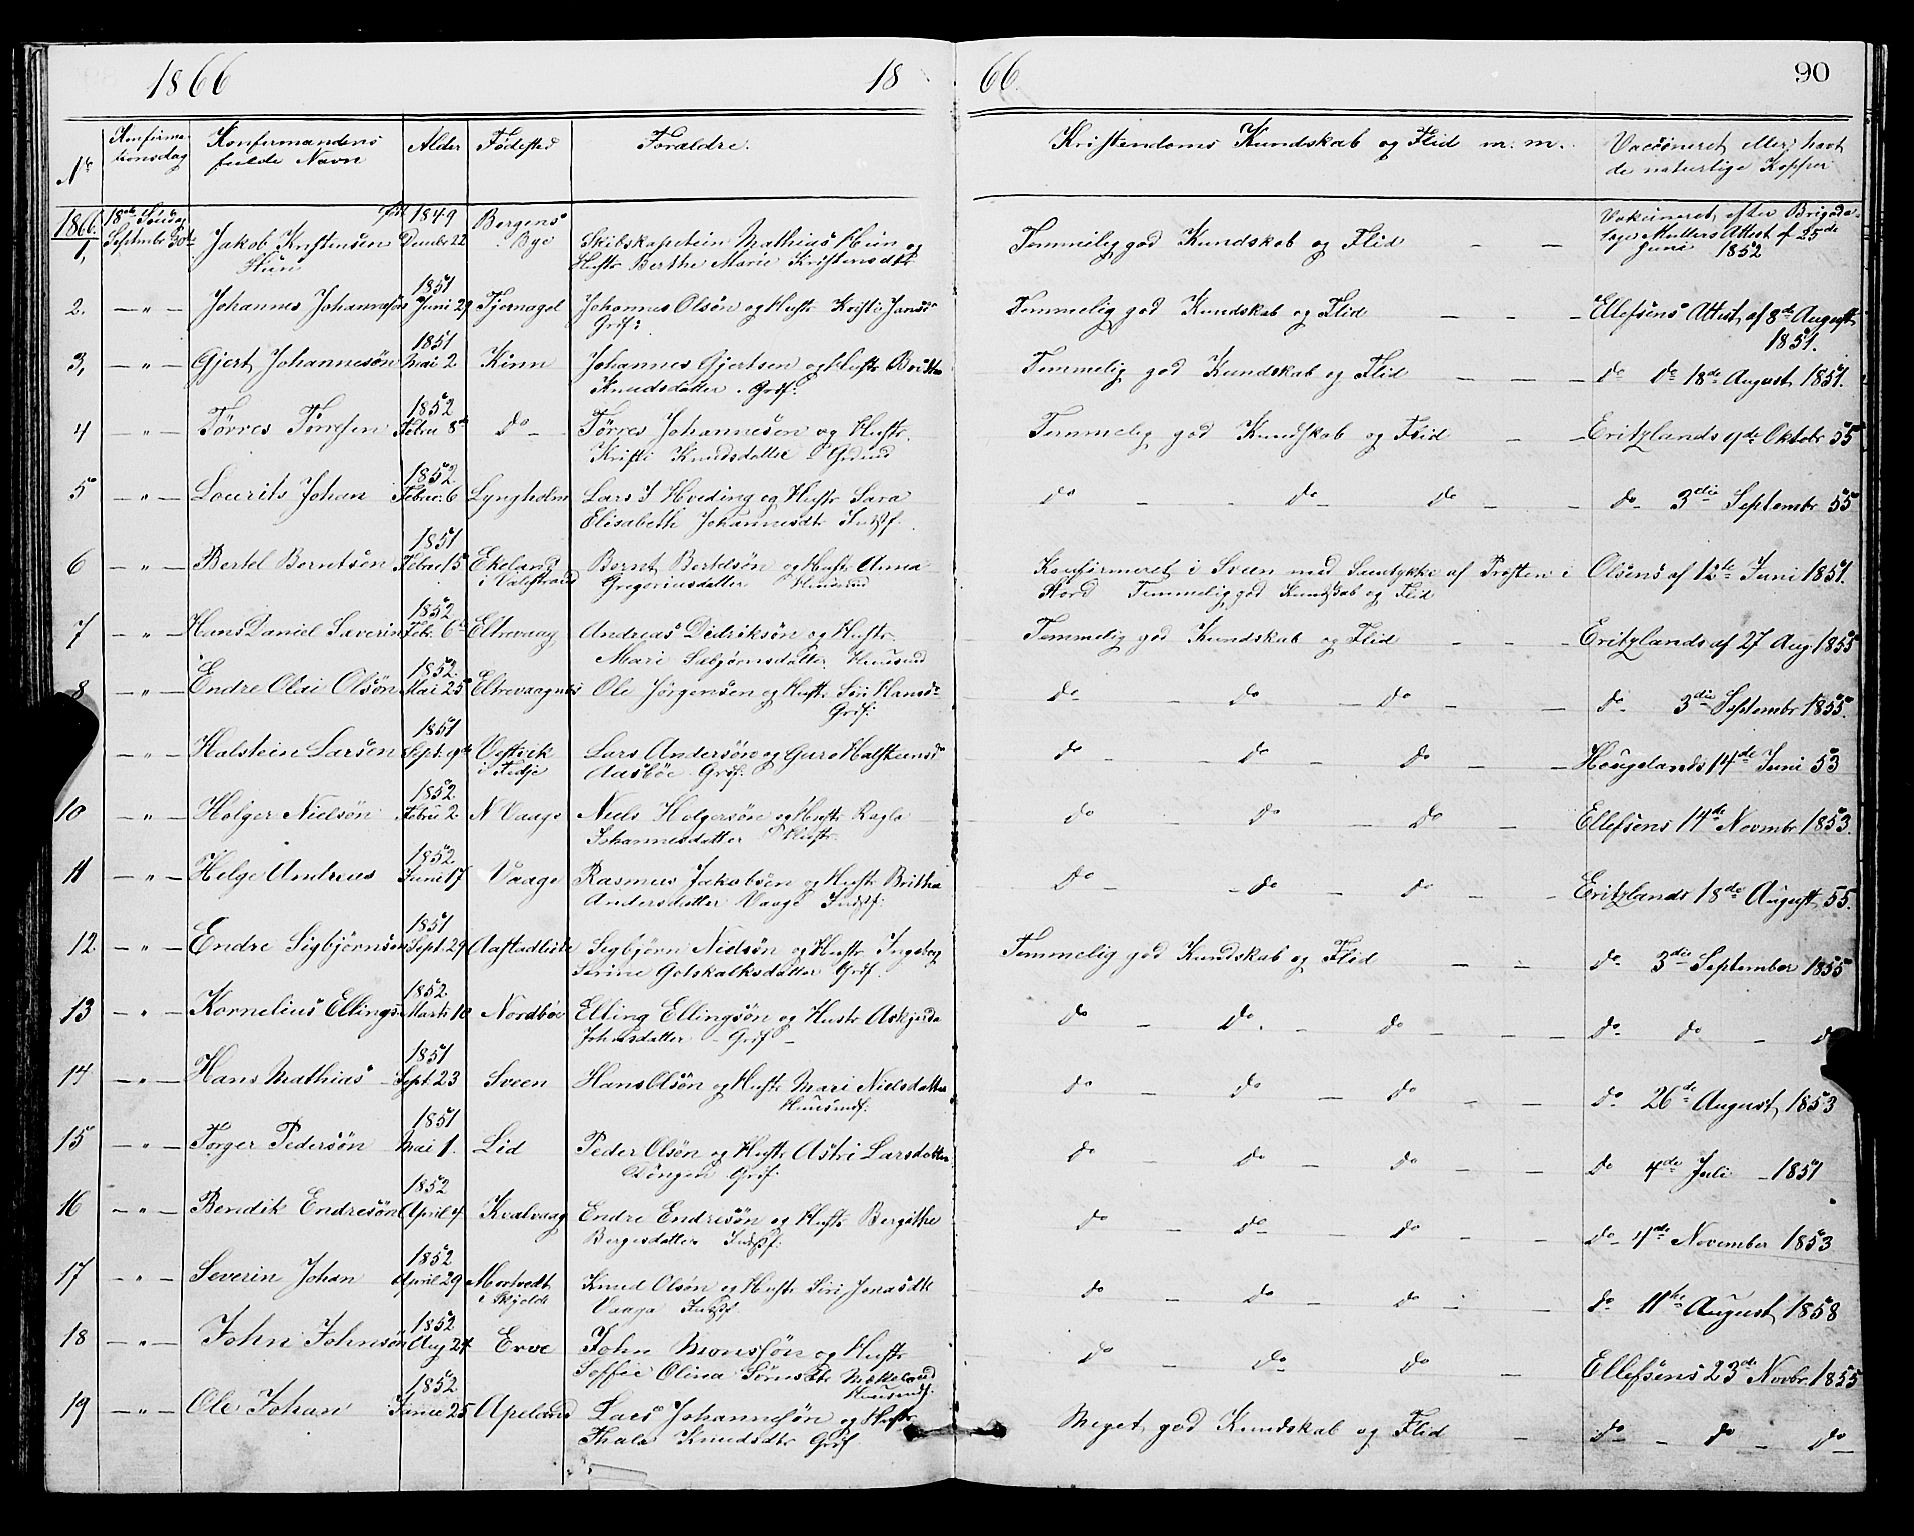 1866 18 66. 90
Nr Konfirma-tionsdag Konfirmandens fulde Navn Alder Fødested Forældre. Kristendoms Kundskab og Flid m. m. Vaccineret eller havt de naturlige Kopper
1866. 18de Søndag Septembr 30te
1, Jakob Kristensen Hun 1849 Decmbr 22 Bergens Bye Skibskapetein Mathias Hun og
Hustr Berthe Marie Kristensdtr Temmelig god Kundskab og Flid — — Vakcineret efter Brigade-
Attest af 25de Juni 1852
2. — " — Johannes Johannesøn 1851 Juni 29 Tjernagel Johannes Olsøn og Hustr Kristi Jansd
Grf: Temmelig god Kundskab og Flid — — — Ellefsens Attest af 8de August 1851.
3, — " — Gjert Johannesøn 1851 Mai 2 Kinn Johannes Gjertsen og Hustr Britha
Knudsdatter. Grf: Temmelig god Kundskab og Flid — — — do do 18de August 1851.
4 — " — Tørres Tørresen 1852 Febru 8de do — Tørres Johannesøn og Hustr.
Kristi Knudsdatter Temmelig god Kundskab og Flid — — Eritzlands 9de Oktobr 55
5 — " — Lourits Johan 1852 Februr. 6 Lyngholm Lars J Hveding og Hustr Sara
Elisabeth Johannesdtr Indstf. do — — do do — — do — 3die Septembr 55
6 — " — Bertel Berntsen 1851 Februar 15 Ekeland i Valestrand Bernt Bertelsøn og Hustr Anna
Gregoriusdatter Huusmd Konfirmeret i Sveen med Samtykke af Prosten i Olsens af 12te Juni 1851.
Stord Temmelig god Kundskab og Flid
7 — " — Hans Daniel Saverin 1852 Febr. 6te Eltrevaag Andreas Didriksøn og Hustr
Mari Sæbjørnsdatter Huusmd Temmelig god Kundskab og Flid — — — Eritzlands af 27 Aug. 1855
8 — " — Endre Olai Olsøn 1852. Mai 25 Eltrevaagnes Ole Jørgensen og Hustr Siri Hansd
Grf: do — do — do — — do — 3die Septembr 1855.
— " — Halstein Larsen 1851 Sept. 9de Vestvik i Fedje Lars Andersøn og Guro Halsteinsd
Aasbøe Grf. do — do — do — — Hougelands 14de Juni 53
10 — " — Holger Nielsøn 1852. Febru 2. N Vaage Niels Holgersøn og Hustr Ragla
Johannesdatter do — do — do — Ellefsens 14de Novmbr 1853.
11 — " — Helge Andreas 1852. Juni 17 Vaage Rasmus Jakobsøn og Hustr Britha
Andersdatter Vaage Indstf: do — — do — do — — Eritzlands 18de August 55.
12 — " — Endre Sigbjørnsen 1851 Sept. 29 Aastadlide Sigbjørn Nielsøn og Hustr Ingeborg
Serine Gotskalksdatter Grf. Temmelig god Kundskab og Flid — — do — 3die September 1855
13 — " — Kornelius Ellings 1852. Marts 10 Nordbøe Elling Ellingsøn og Hustr Askjerda
Johnsdatter — Grf — do — do. — do — — — do — do — do
14 — " — Hans Mathias — 1851 Sept. 23 Sveen Hans Olsøn og Hustr Mari Nielsdatter
Huusmd: do — do — do — — do — 26de August 1853
15 — " — Torger Pedersøn 1851 Mai 1. Lid Peder Olsøn og Hustr Astri Larsdatter
Grf. do — do — do — — do 4de Juli — 1851
16 — " — Bendik Endresøn 1852 April 4 Kvalvaag Endre Endresøn og Hustr Bergithe
Bergesdatter Indstf: do — do — do — — do — 4de November 1853
17 — " — Severin Johan 1852 April 29 Mortvedt i Skjolde Knud Olsøn og Hustr Siri Jonasdtr
Vaaga Indstf do — do — do — — do — 11te August 1858
18 — " — John Johnsøn 1852 Aug 24 Erve John og Hustr
Soffie Olina Huusmd: do — do — do — Ellefsens 23de Novbr. 1855
19 — " — Ole Johan 1852. Januar 25 Apeland Lars Johannesøn og Hustr
Thala Knudsdtr Grf Meget god Kundskab og Flid — do — do — do —